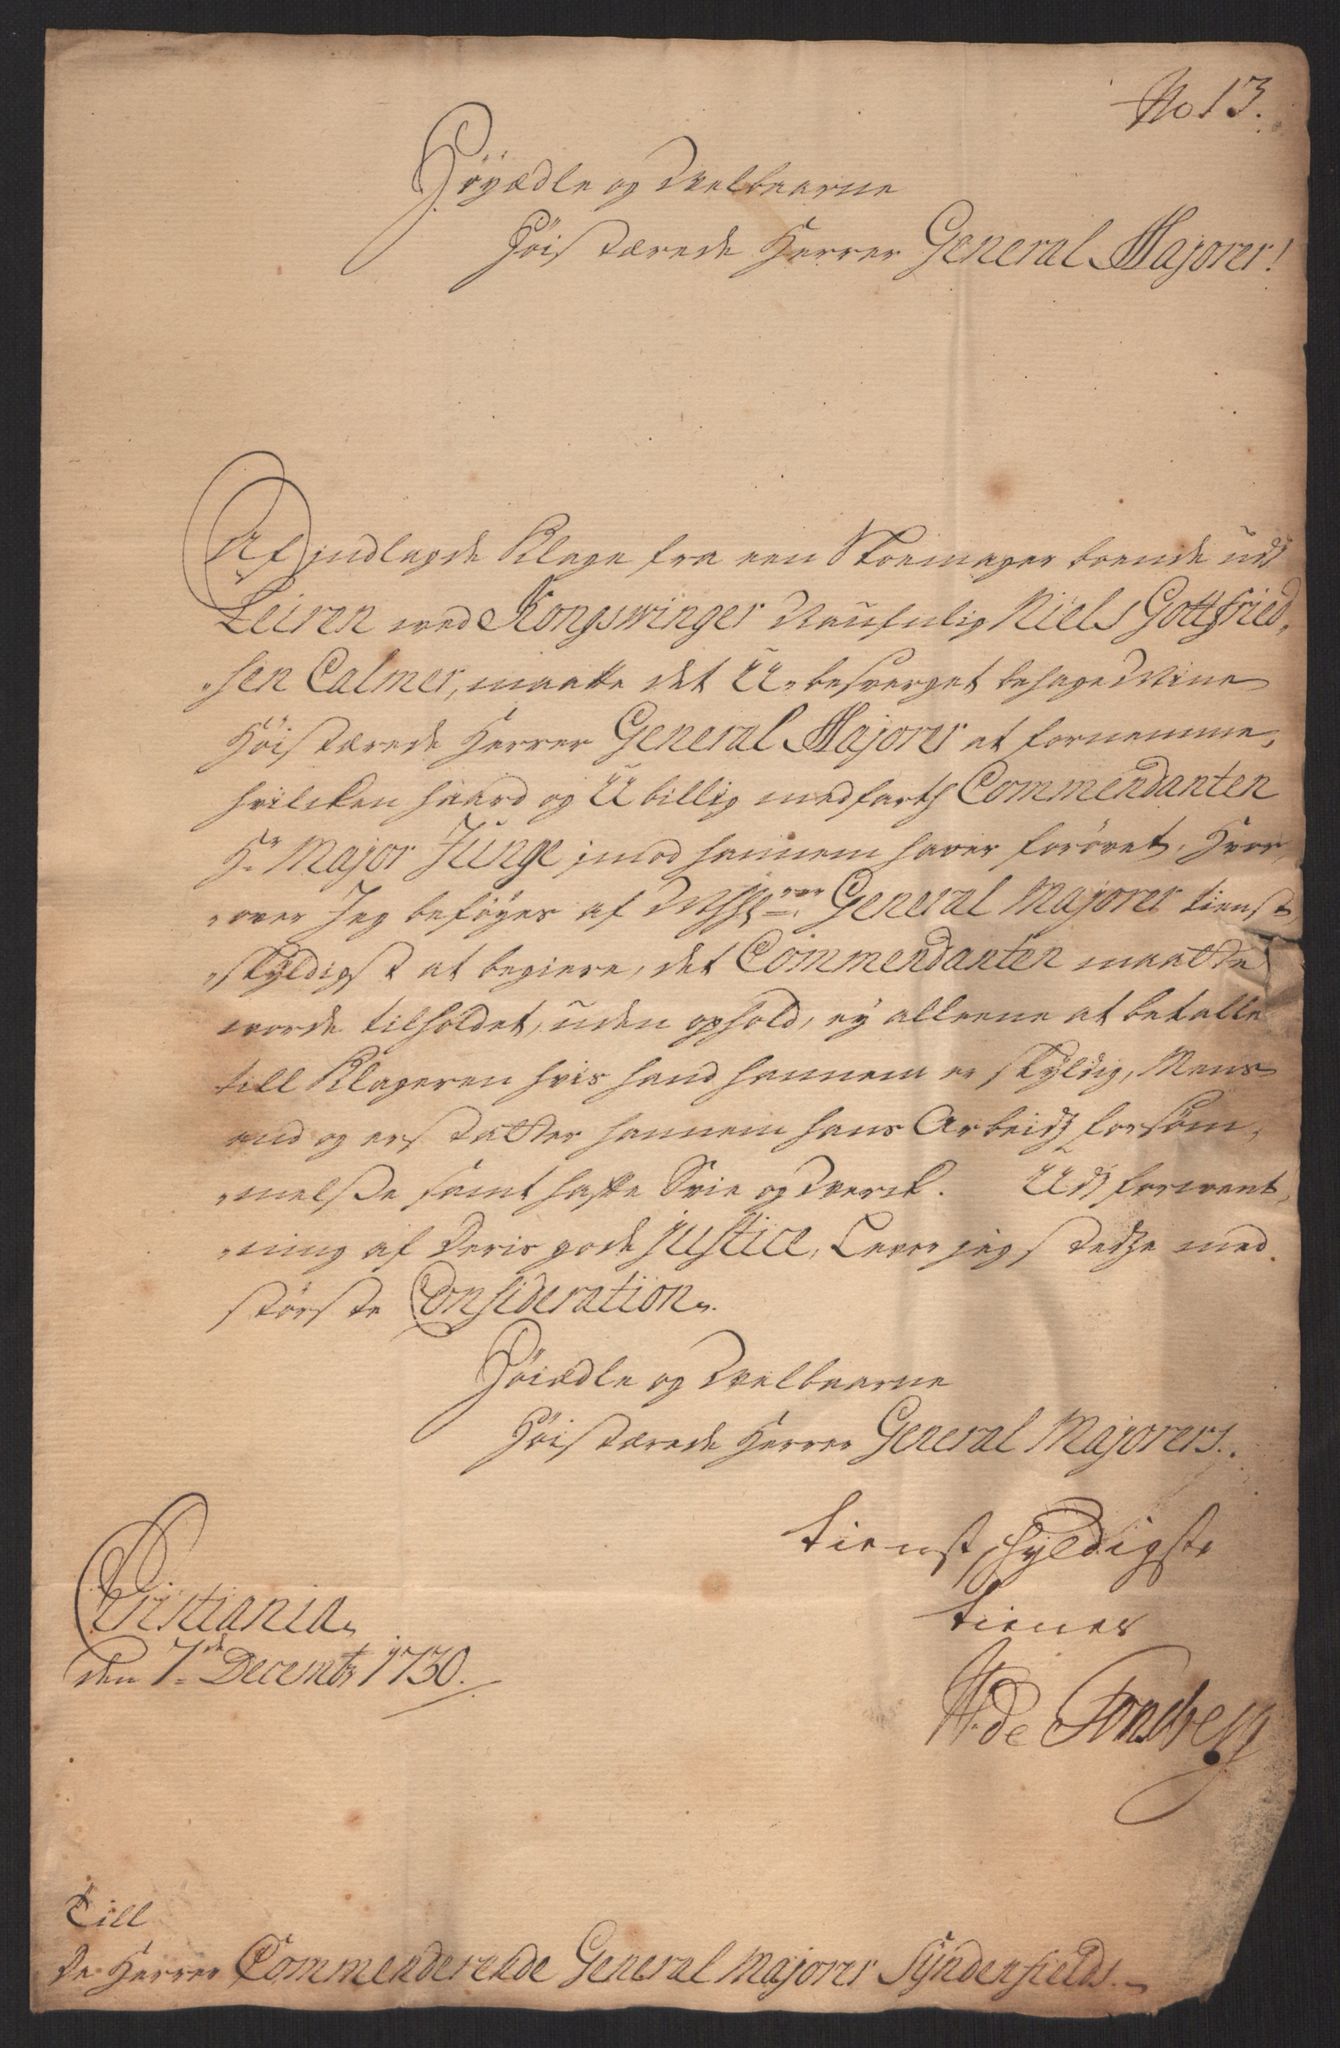 No 13.
Höyædle og Velbaarne
Höist ærede Herrer General Majorer!
Af indlagde Klage fra een Skoemager boende udj
Leiren ved Kongswinger Naufnlig Niels Gottfried„
„sen Calmer, maatte det U-besverget behage Mine
Höist ærede Herrer General Majorer at fornemme,
hvilcken haard og Ubillig medfarth Commendanten
Hr Major Junge imod hannem haver forövet, Hvor„
„over Jeg beföyes af General Majorer tienst„
„skyldigst at begiere, det Commendanten maatte
vorde tilholdet, uden ophold, ey alleene at betalle
till Klageren hvis hand hannem er skyldig, Mens
end og erstatter hannem hans Arbeidz forsöm„
„melße samt hafte Svie og Verck. Udj forvent„
„ning af Deris gode justice, Lever jeg stedze med
störste Consideration.
Höiædle og Velbaarne
Höist ærede Herrer General Majorers.
tienst skyldigste
tiener
W. de Tonsberg
Cristiania
den 7de Decembr 1730.
Till
De Herrer Commenderende General Majorer Syndenfields.